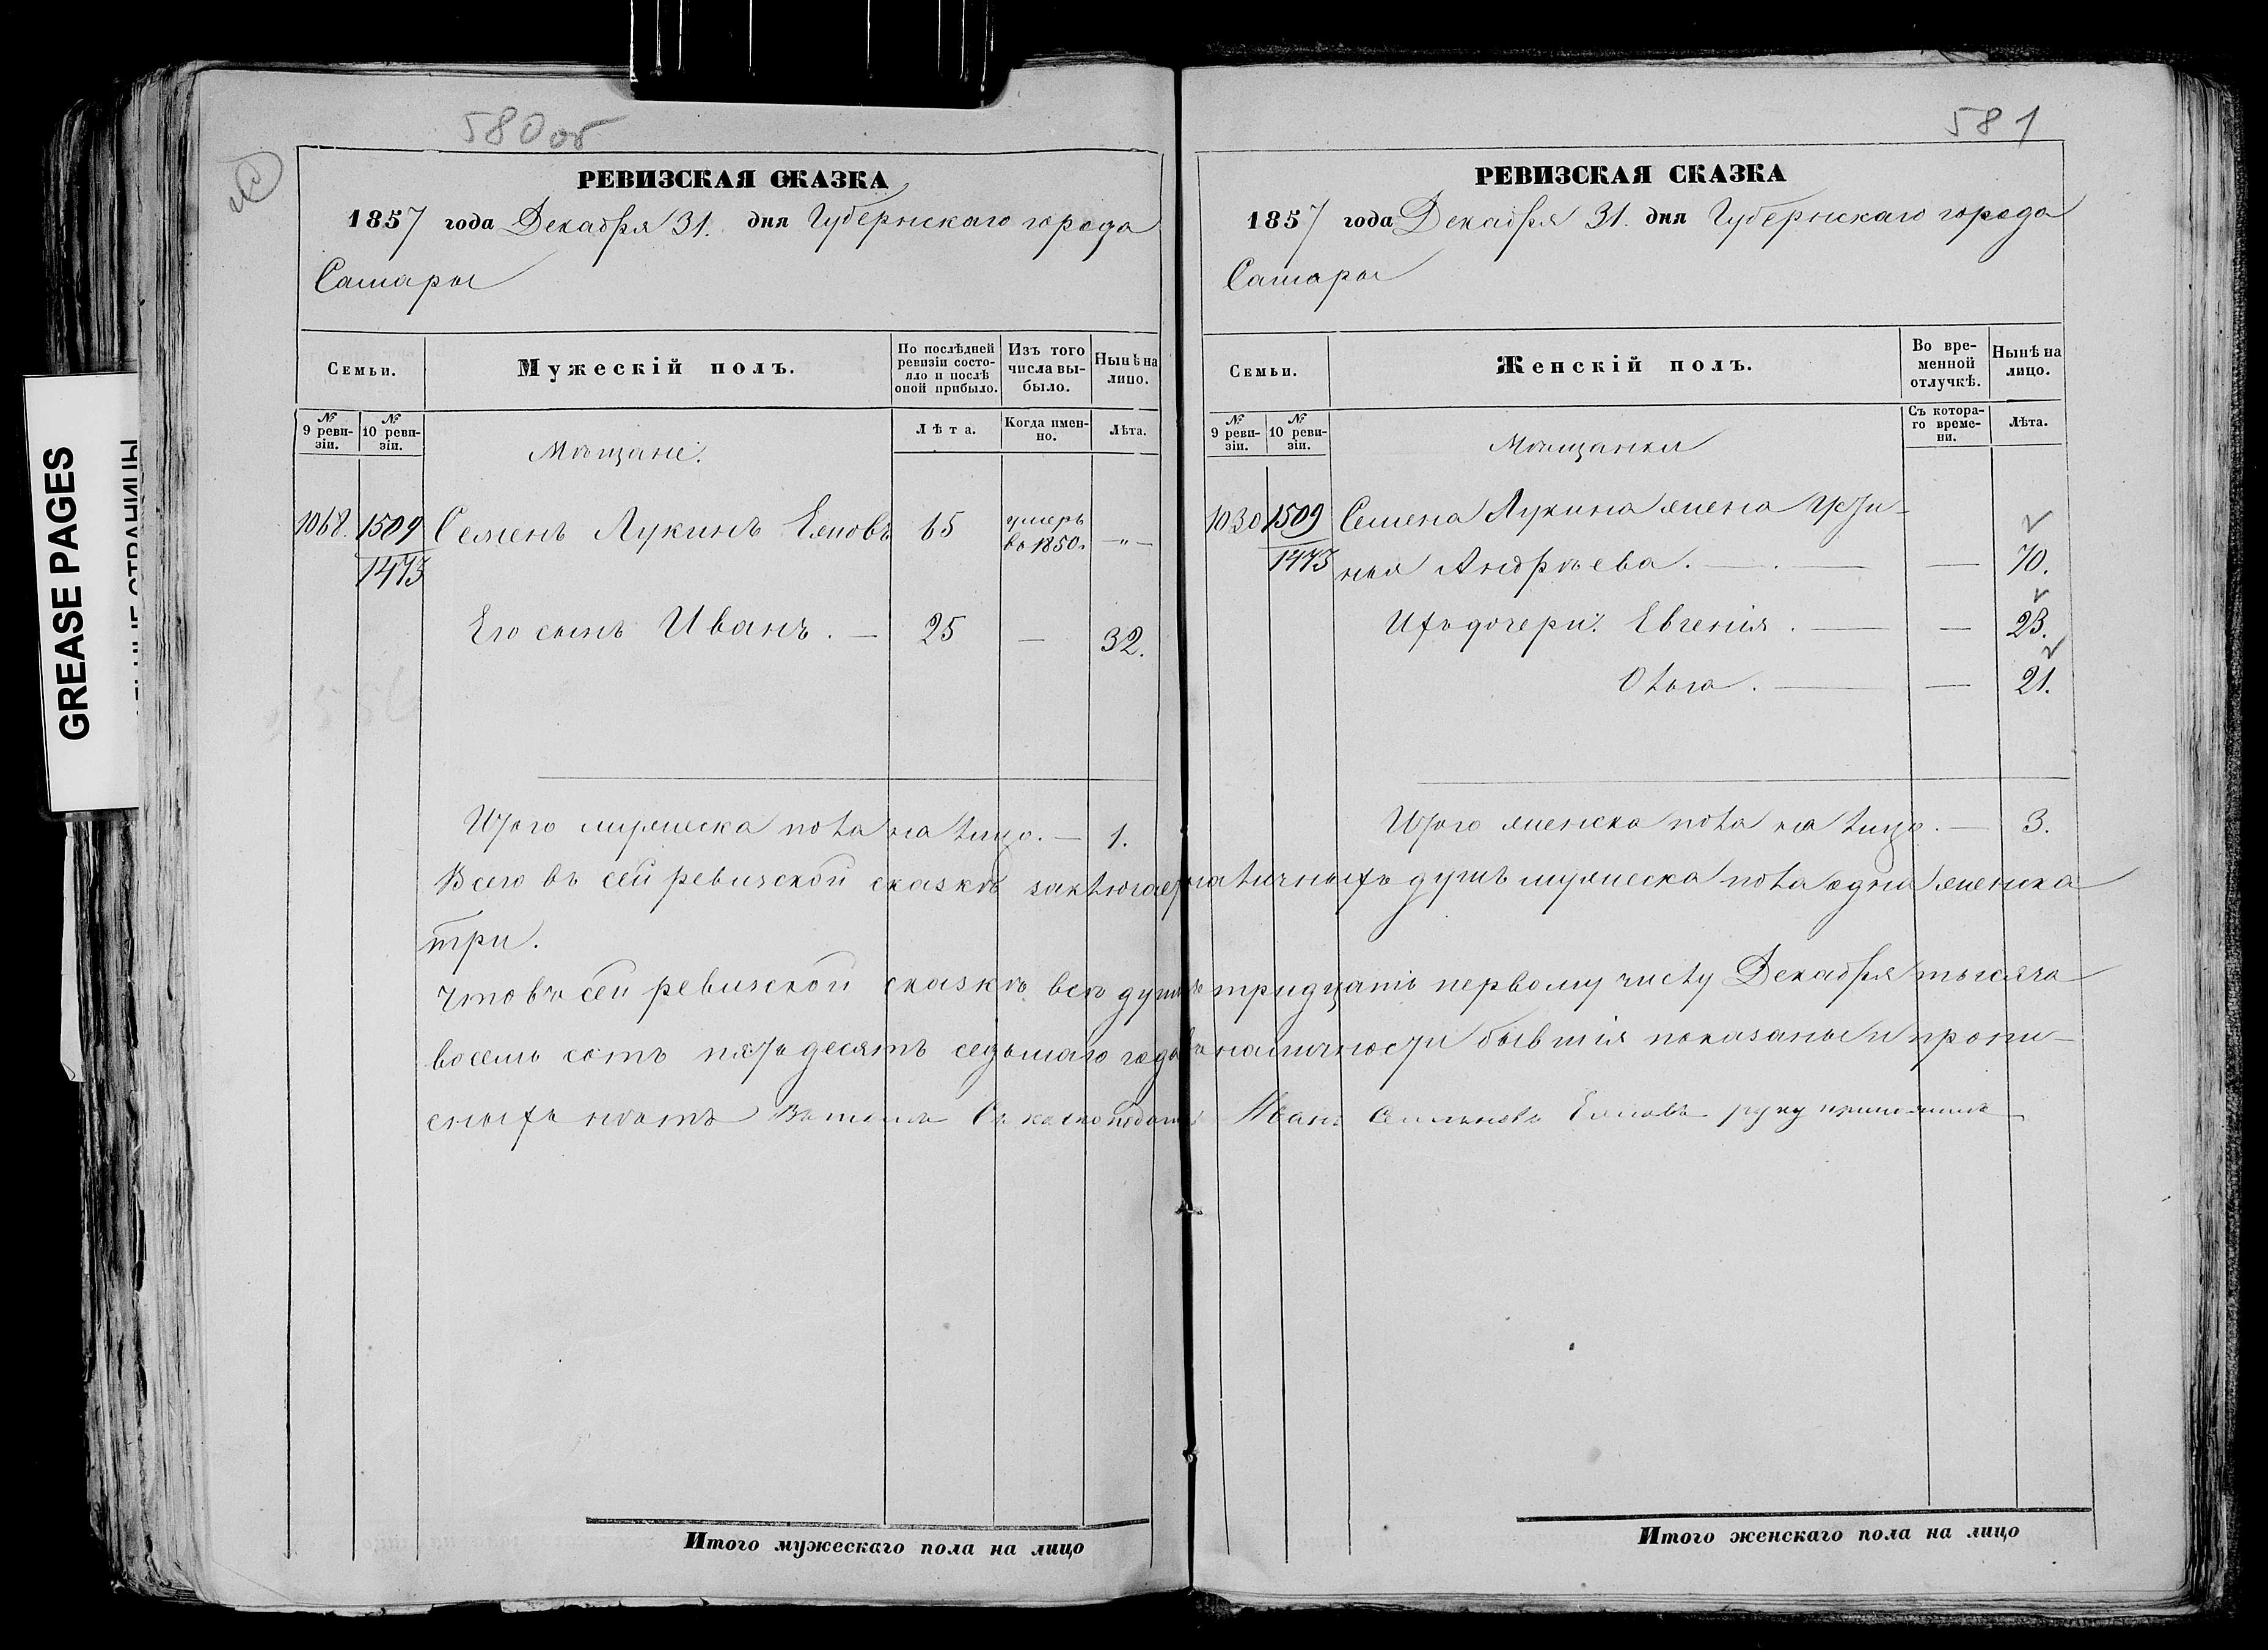 580 об
РЕВИЗСКАЯ СКАЗКА
1857 года Декабря 31. дня Губернскаго города
Самары
Семьи.
Мужескій полъ.
По послѣдней ревизіи состояло и послѣ оной прибыло.
Изъ того числа выбыло.
Нынѣ на лицо.
№ 9 ревизіи.
№ 10 ревизіи.
Лѣта.
Когда именно.
Лѣта.
Мѣщане.
1068. 1509 Семенъ Лукинъ 65 умеръ въ 1850. —"—
1473
Его сынъ Иванъ. — 25 — 32.
Итого мужеска пола на лицо. — 1.
581
РЕВИЗСКАЯ СКАЗКА
1857 года Декабря 31. дня Губернскаго города
Самары
Семьи.
Женскій полъ.
Во временной отлучкѣ.
Нынѣ на лицо.
№ 9 ревизіи.
№ 10 ревизіи.
Съ котораго времени.
Лѣта.
Мѣщанки
1030 1509 Семена Лукина жена Усти-
1473 нья Андрѣева. — — 70.
Ихъ дочери: Евгенія. — — 23.
Ольга. — — 21.
Итого женска пола на лицо. — 3.
Всего въ сей ревизской сказкѣ заключает наличныхъ душъ мужеска пола одна женска
три.
Что въ сей ревизской сказкѣ всѣ души тридцать первому числу Декабря тысяча
восемь сотъ пятьдесятъ седьмаго года въ наличности бывшія показаны и пропи-
сныхъ нѣтъ Въ томъ Иванъ Семеновъ руку приложилъ
Итого мужескаго пола на лицо
Итого женскаго пола на лицо
GREASE PAGES